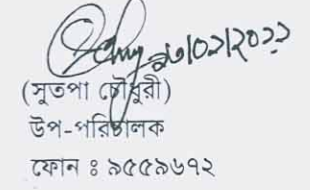 ২৩/০১/২০২২
(সুতপা চৌধুরী)
উপ-পরিচালক
ফোন ঃ ৯৫৫৯৬৭২